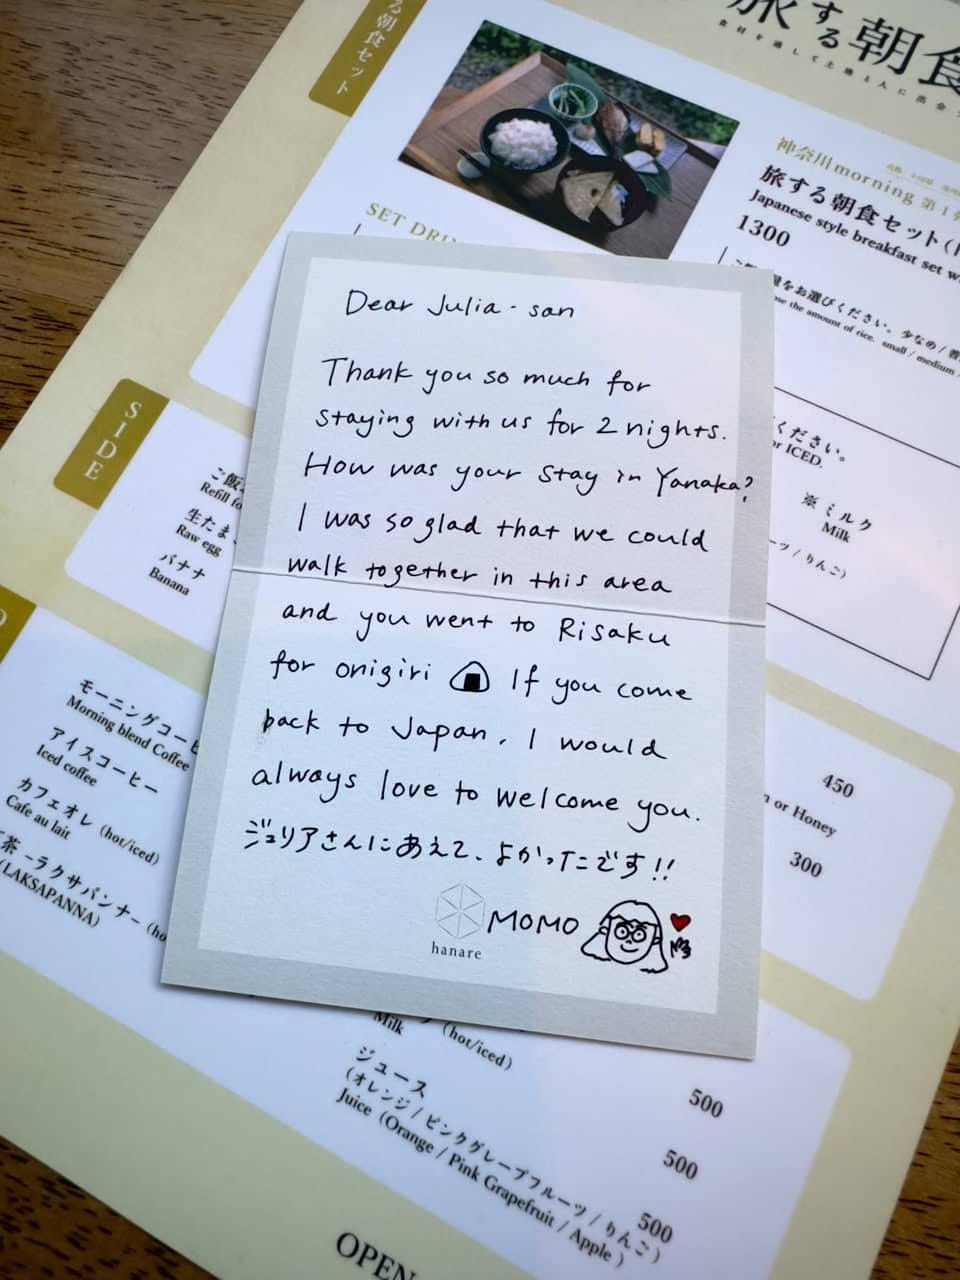 る朝食セット
旅する朝食
食材を通して土地と人に出会
神奈川morning 第1
旅する朝食セット(
Japanese style breakfast set w
1300
SET DRI
をお選びください。少なめ/
se the amount of rice. small / medium /
Dear Julia-san
Thank you so much for
staying with us for 2 nights.
How was your stay in Yanaka?
I was so glad that we could
walk together in this area
and you went to Risaku
for onigiri 🍙 If you come
back to Japan, I would
always love to welcome you.
ジュリアさんにあえて、よかったです!!
hanare
MOMO
ください。
or ICED.
※ミルク
Milk
ーツ/りんご)
SIDE
ご飯
Refill fo
生たまご
Raw egg
バナナ
Banana
モーニングコーヒ
Morning blend Coffee
アイスコーヒー
Iced coffee
カフェオレ (hot/iced)
Cafe au lait
茶 -ラクサパンナー (ho
(LAKSAPANNA)
450
n or Honey
300
(hot/iced)
Milk
500
ジュース
(オレンジ/ピンクグレープフルーツ/りんご)
Juice (Orange / Pink Grapefruit / Apple )
500
500
OPEN